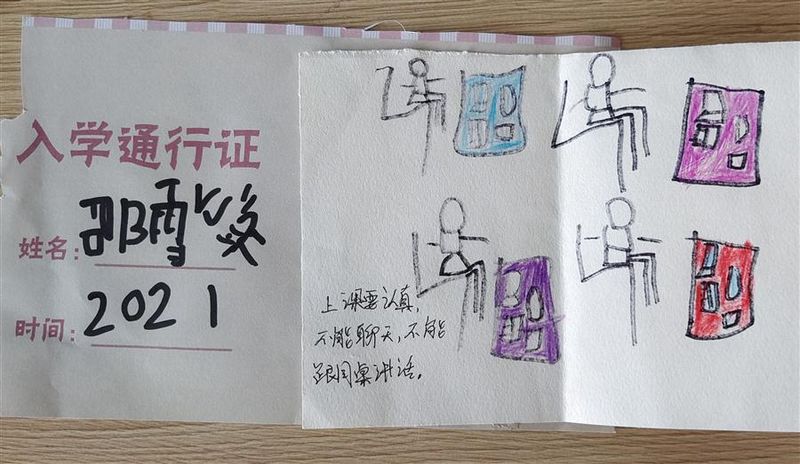 入学通行证
姓名：邵雪
时间：2021
上课要认真，
不能聊天，不能
跟同桌讲话。